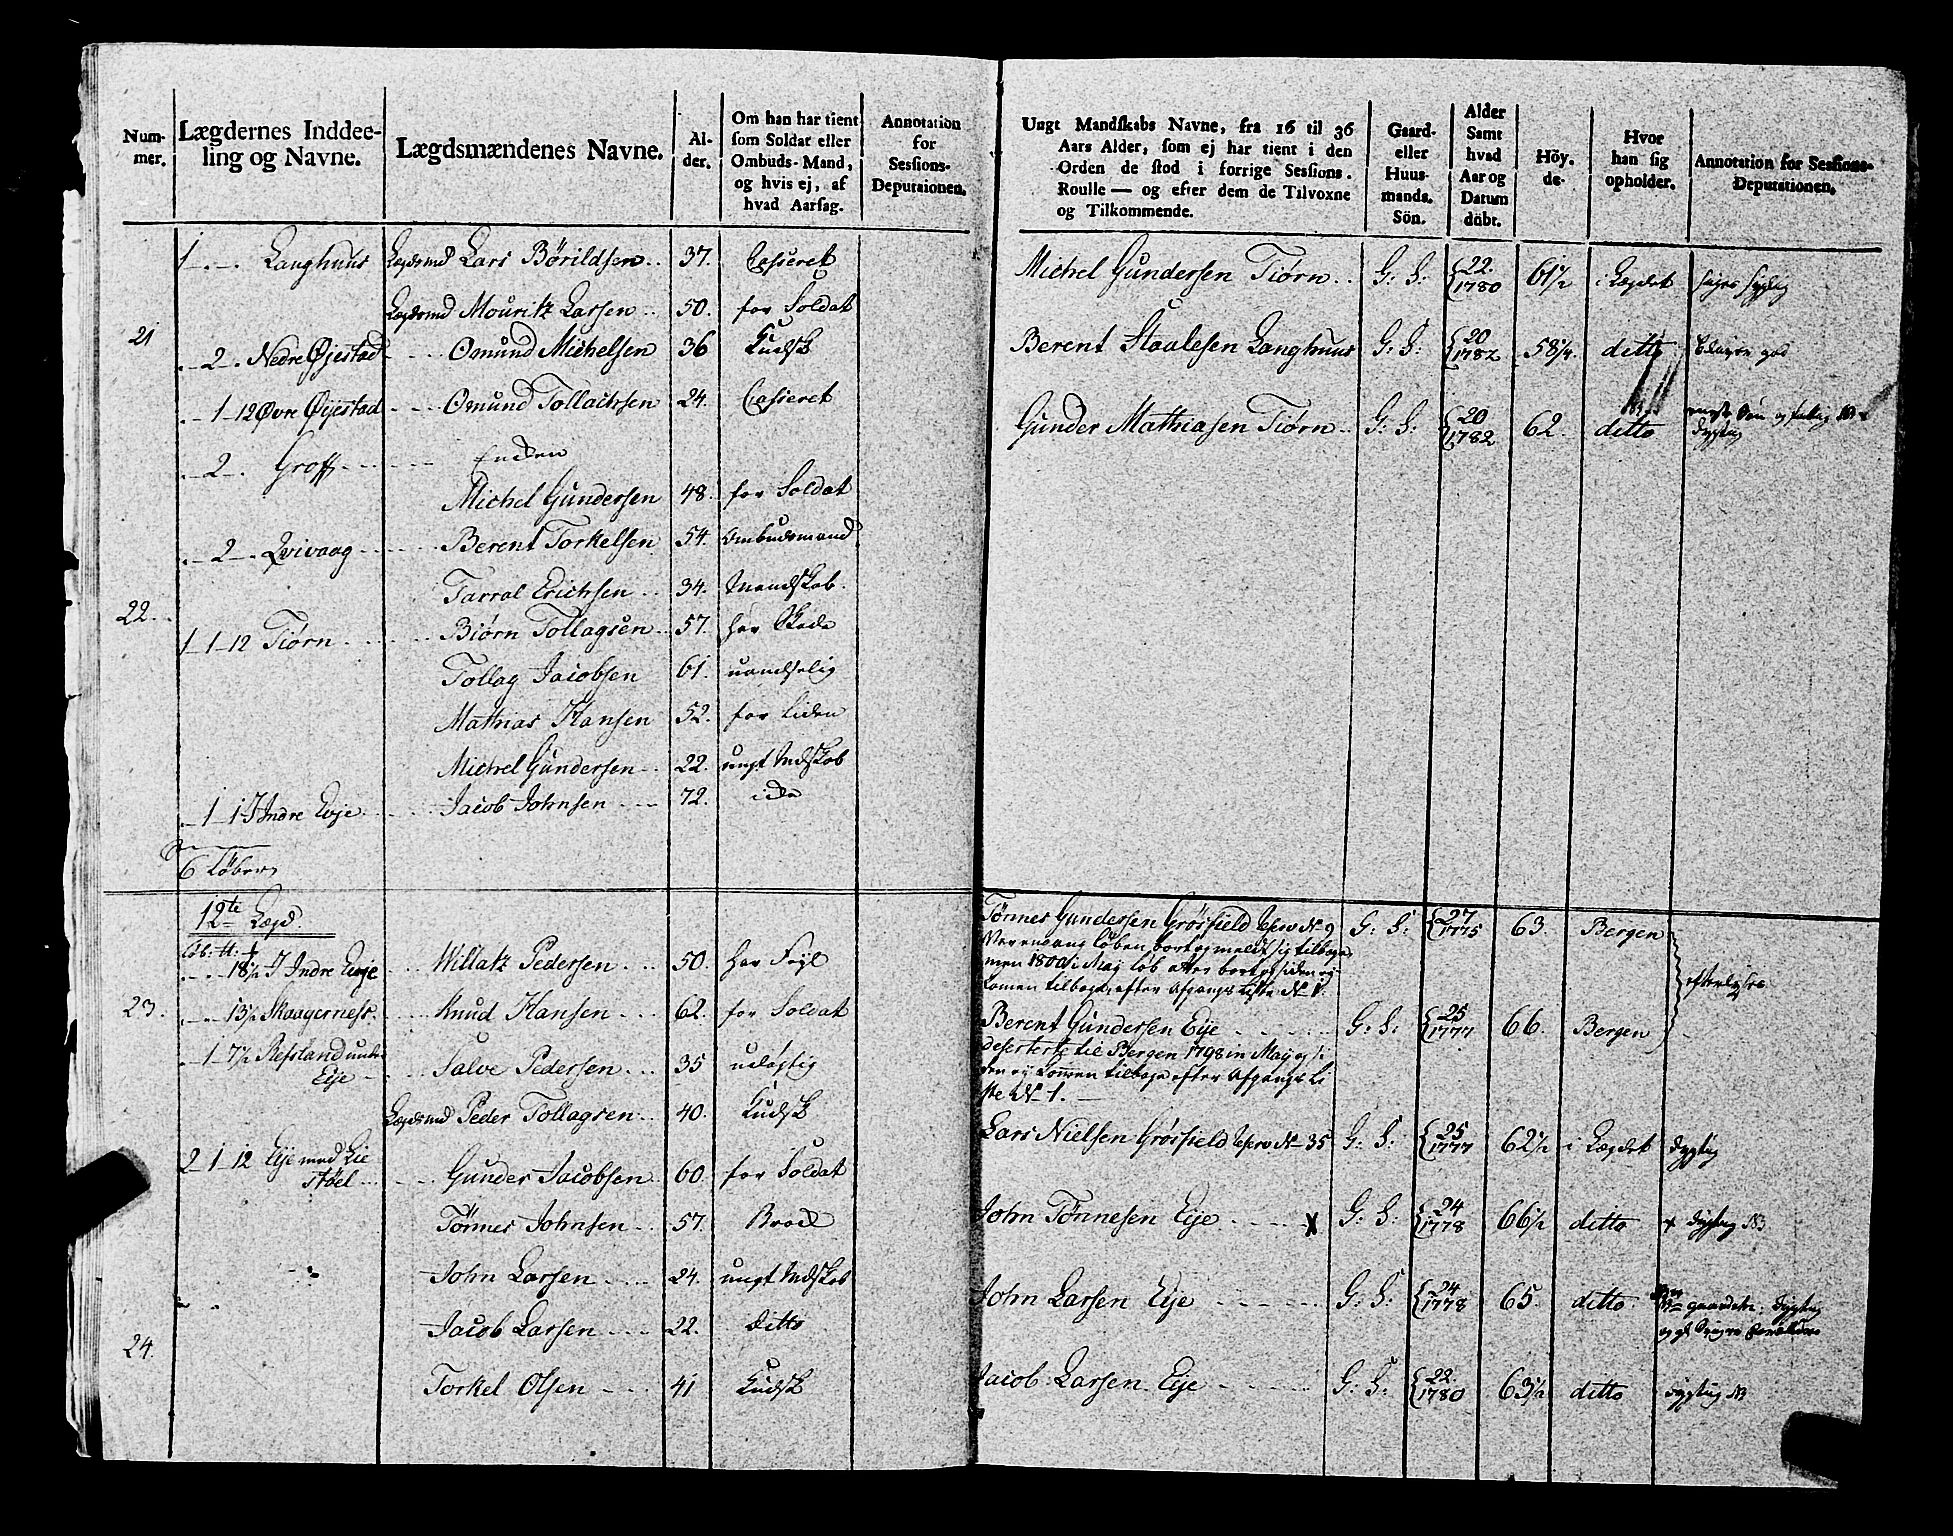 Num-
mer.
Lægdernes Inddee-
ling og Navne.
Lægdsmændenes Navne.
Al-
der.
Om han har tient
som Soldat eller
Ombuds-Mand,
og hvis ej, af
hvad Aarsag.
Annotation
for
Sessions-
Deputaionen.
21
1 Langhuus Lægdsmd Lars Börildsen 37. Casseret
Lægdsmd Mouritz Larsen 50. for Soldat
2 Nedre Øjestad Omund Michelsen 36 Kudsk
1 - 12 Øvre Øjestad Omund Tollachsen 24. Casseret
2 Groff Enden
Michel Gundersen 48. for Soldat
2 Qvivaag Berent Torkelsen 54. Ombudsmand
22.
Tarral Erichsen 34. Mandskab
1 - 1 - 12 Tiørn Biørn Tollagsen 57. har Skade
Tollag Jacobsen 61. uandselig
Mathias Hansen 52. for liden
Michel Gundersen 22. ungt Mdskob
Indre Eyje Jacob Johnsen 72.
6 Løber
12te Lægd.
18½ I Indre Eyje Willatz Pedersen 50. har Feyl
23.
13½ Skaagernes Knud Hansen 62. for Soldat
1 - 7½ Refsland under
Eije Salve Pedersen 35 udøjtig
Lægdsmd Peder Tollagsen 40. Kudsk
2 - 1 - 12 Eije med Lie
støel Gunder Jacobsen 60. for Soldat
Tönnes Johnsen 57. Brock
John Larsen 24. ungt Mdskob
24.
Jacob Larsen 22. Ditto
Torkel Olsen 41 Kudsk
Ungt Mandskabs Navne, fra 16 til 36
Aars Alder, som ej har tient i den
Orden de stod i forrige Sessions-
Roulle — og efter dem de Tilvoxne
og Tilkommende.
Gaard-
eller
Huus-
mands.
Sön.
Alder
Samt
hvad
Aar og
Datum
döbt.
Höy-
de.
Hvor
han sig
opholder.
Annotation for Sessions-
Deputationen.
Michel Gundersen Tiørn G: S: 22. 1780 61½ i Lægdet
Berent Staalesen Langhuus G: S: 20 1782 58¼ ditto
Gunder Mathiasen Tiørn G: S: 20 1782 62. ditto
Tönnes Gundersen Grösfield G: S: 27 1775 63 Bergen
Veren gang löben bort og meldt sig tilbage
men 1800 i Maj löb atter bort og siden ey
kommen tilbage, efter Afgangs Liste No 1. efterlyses
Berent Gundersen Eije G: S: 25 1777 66. Bergen
deserterte til Bergen 1798 in Maij og si
den ey kommen tilbage efter Afgangs Li
ste No 1.
Lars Nielsen Grösfield No 35 G: S: 25 1777 62½ i Lægdet dygtig
John Tönnesen Eije x G: S: 24 1778 66½ ditto x dygtig
John Larsen Eije G: S: 24 1778 65. ditto dygtig
Jacob Larsen Eije G: S: 22. 1780 63½ ditto dygtig